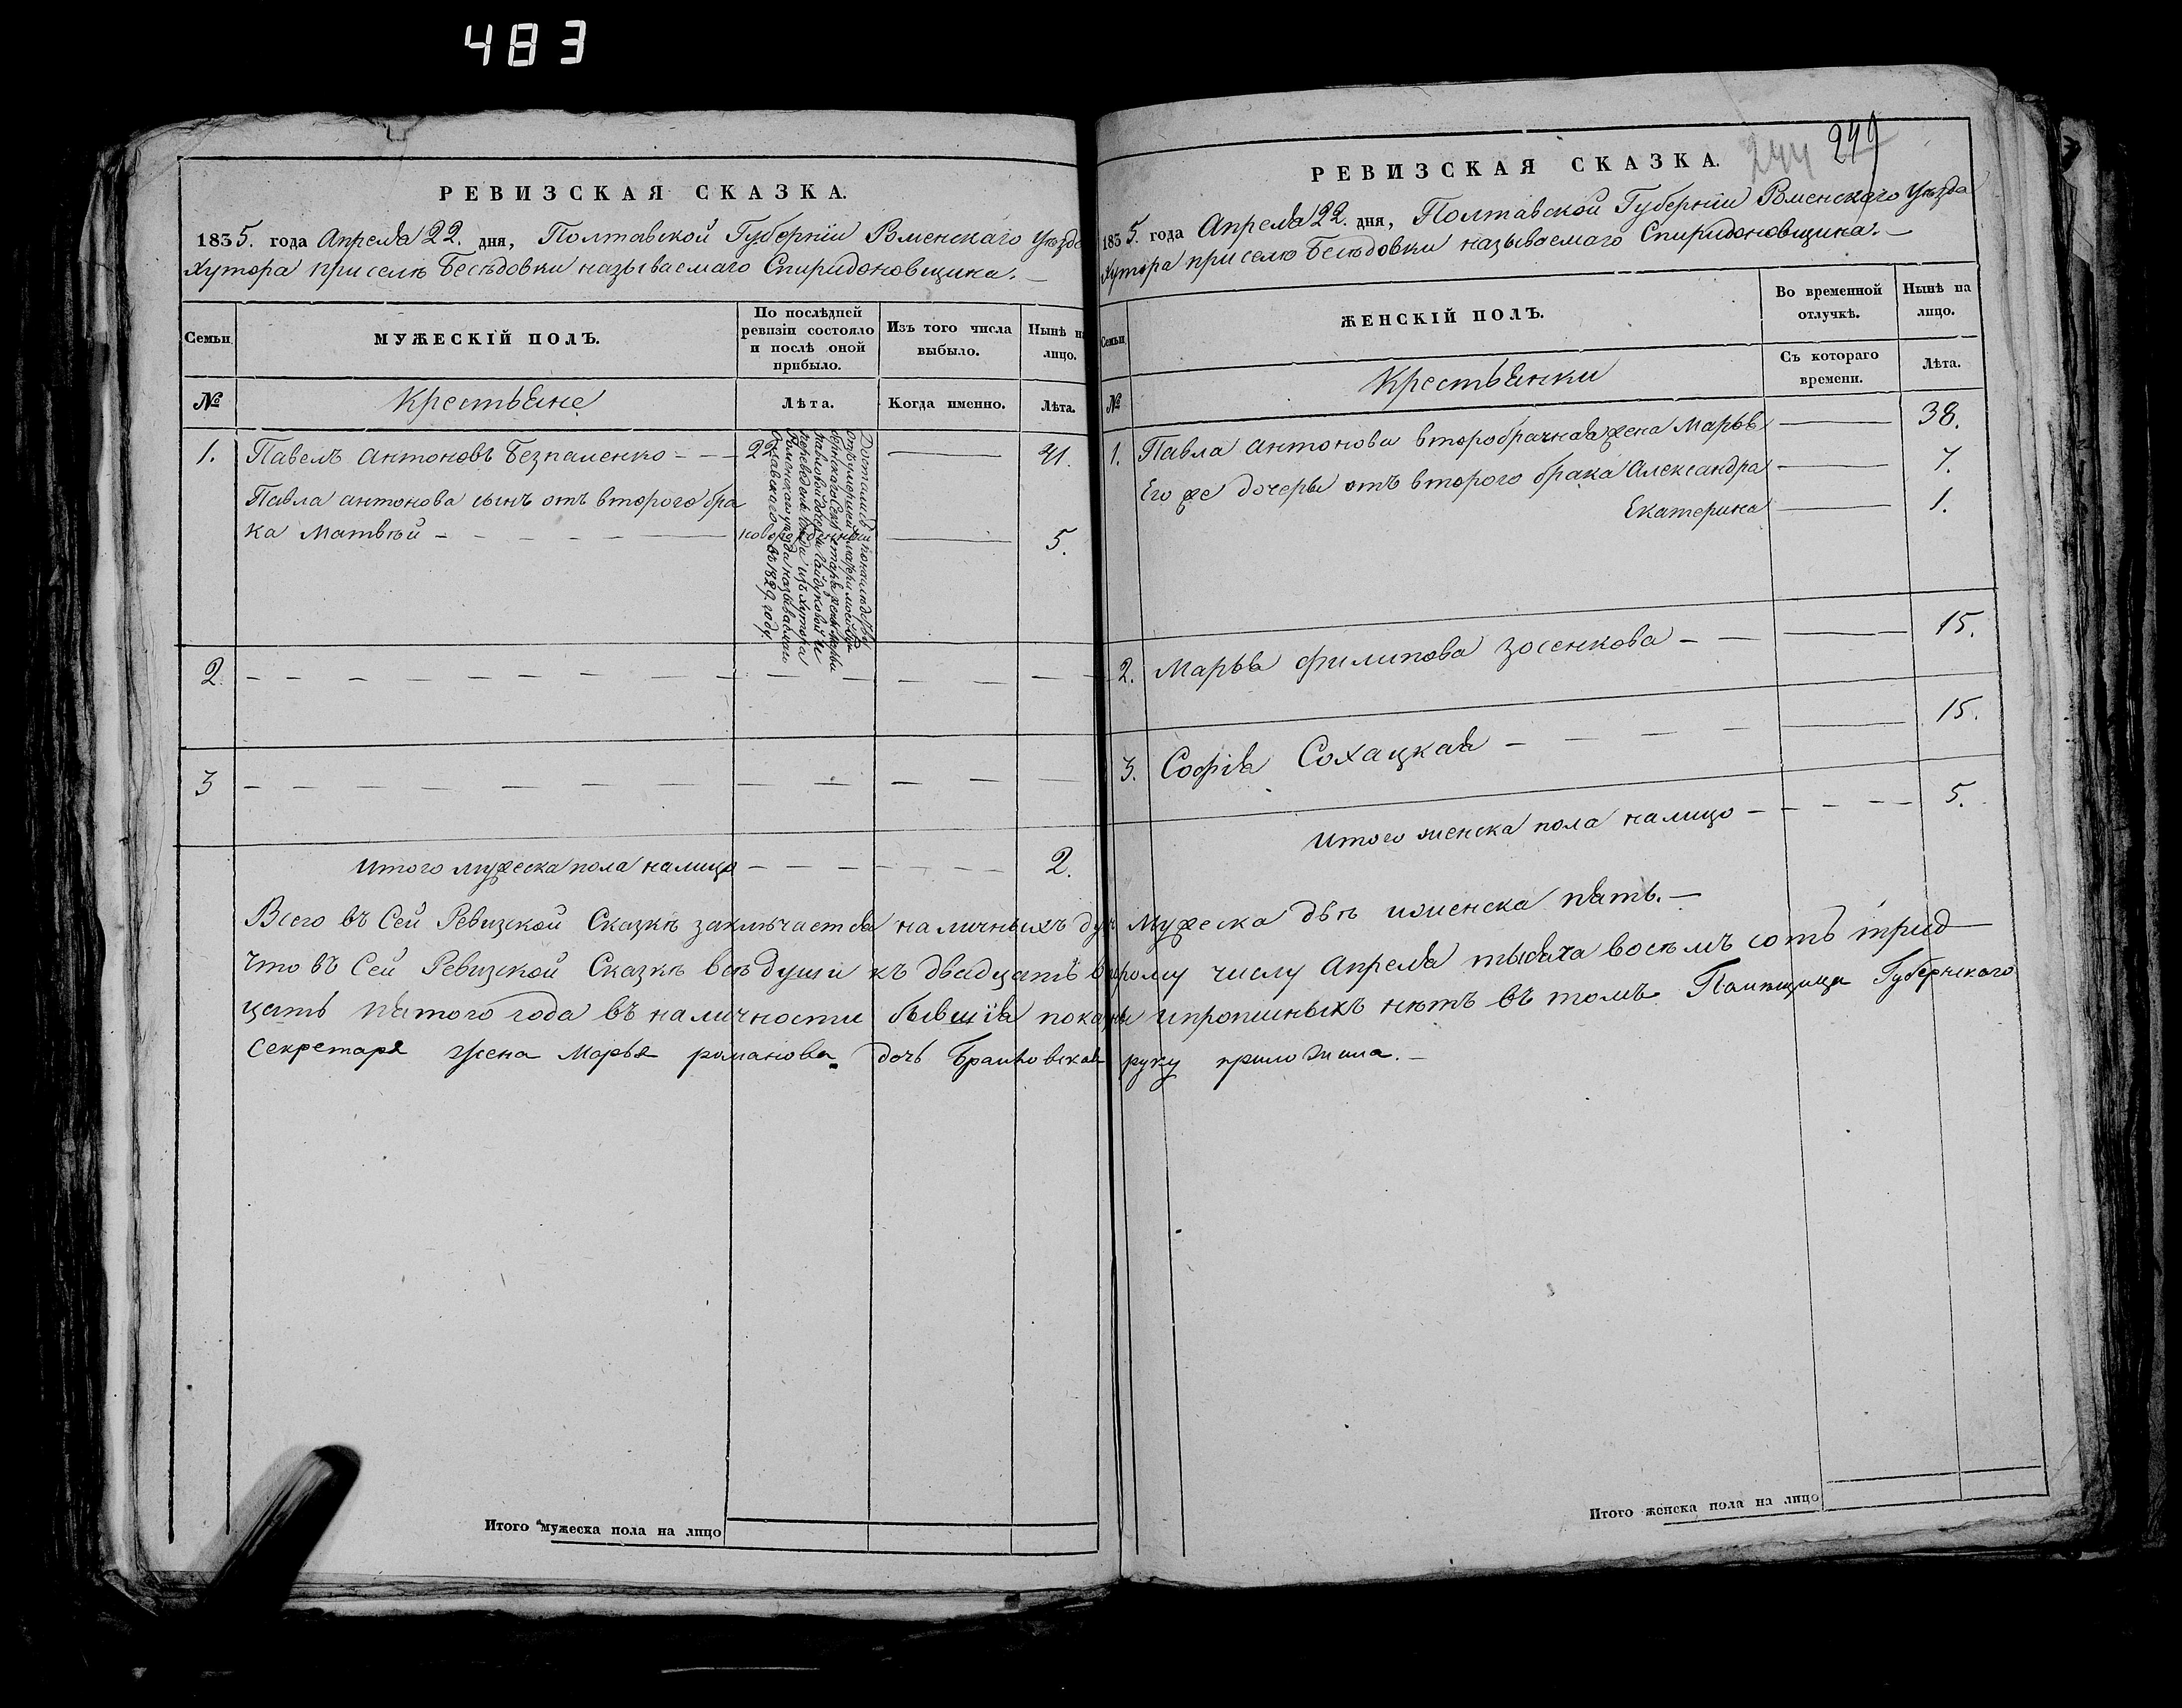 483
РЕВИЗСКАЯ СКАЗКА.
1835. года Апреля 22. дня, Полтавской Губерніи Роменскаго Уѣзда
Хутора при селѣ Бесѣдовки называемаго Спиридоновщина. —
Семьи
МУЖЕСКІЙ ПОЛЪ.
По послѣдней ревизіи состояло и послѣ оной прибыло.
Изъ того числа выбыло.
Нынѣ на лицо.
№
Крестьяне
Лѣта.
Когда именно.
Лѣта.
1. Павелъ антоновъ Безпаменко - - - 41.
Павла антонова сынъ отъ второго бра
ка Матвѣй - - - - новорожденный — 5.
въ 1829. году.
2. — — — —
3 — — — —
Итого мужеска пола налицо — — — 2.
РЕВИЗСКАЯ СКАЗКА.
244 249
1835. года Апреля 22. дня, Полтавской Губерніи Роменскаго Уѣзда
Хутора при селѣ Бесѣдовки называемаго Спиридоновщина. —
Семьи
ЖЕНСКІЙ ПОЛЪ.
Во временной отлучкѣ.
Нынѣ на лицо.
№
Крестьянки
Съ котораго времени.
Лѣта.
1. Павла антонова второбрачная жена Марья — 38.
Его же дочеры отъ второго брака Александра — 7.
Екатерина — 1.
2. Марья филипова Зосенкова — — 15.
3. Софія Сохацкая — — — 15.
Итого женска пола налицо — — — 5.
Всего въ Сей Ревизской Сказкѣ заключается наличныхъ душ Мужеска двѣ иженска пять. —
Что въ Сей Ревизской Сказкѣ всѣ души къ двадцать второму числу Апреля тысяча восемъ сотъ трид
цать пятого года въ наличности бывшія показаны ипропиныхъ нѣтъ въ томъ Помѣщица Губернскаго
Секретаря жена Марья романова дочь руку приложила. —
Итого мужеска пола на лицо
Итого женска пола на лицо